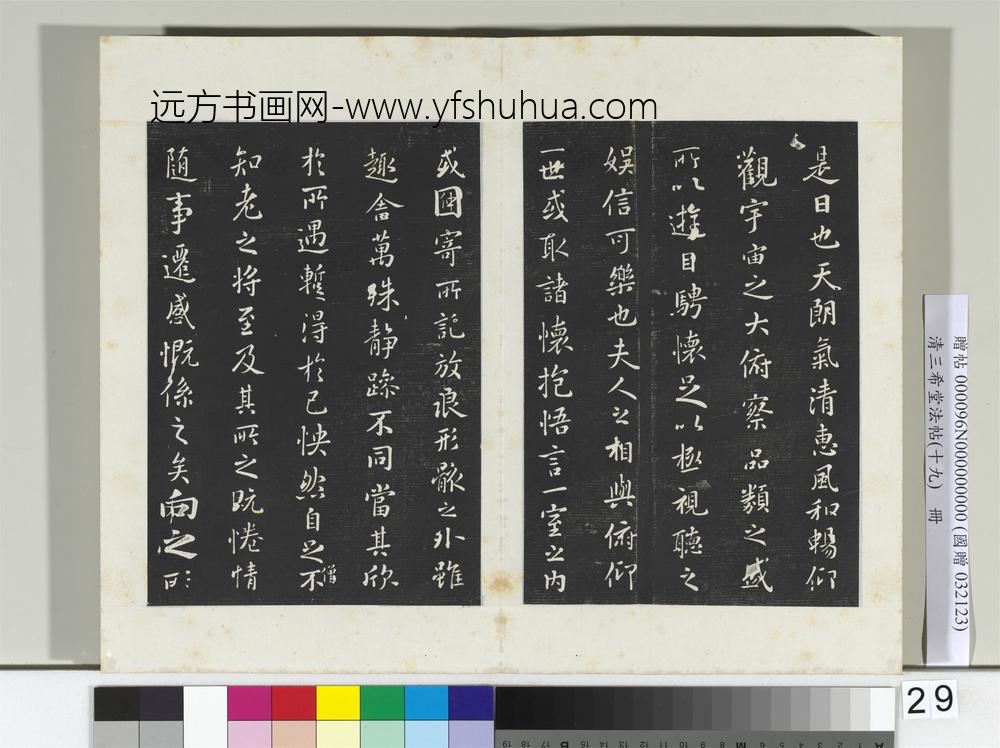 远方书画网-www.yfshuhua.com
是日也天朗氣清惠風和暢仰
觀宇宙之大俯察品類之盛
所以遊目騁懷足以極視聽之
娛信可樂也夫人之相與俯仰
一世或取諸懷抱悟言一室之內
或因寄所託放浪形骸之外雖
趣舍萬殊静躁不同當其欣
於所遇暫得於己怏然自足不
僧
知老之将至及其所之既惓情
随事遷感慨係之矣向之所
贈帖 000096N000000000 (國贈 032123)
清三希堂法帖(十九) 冊
29